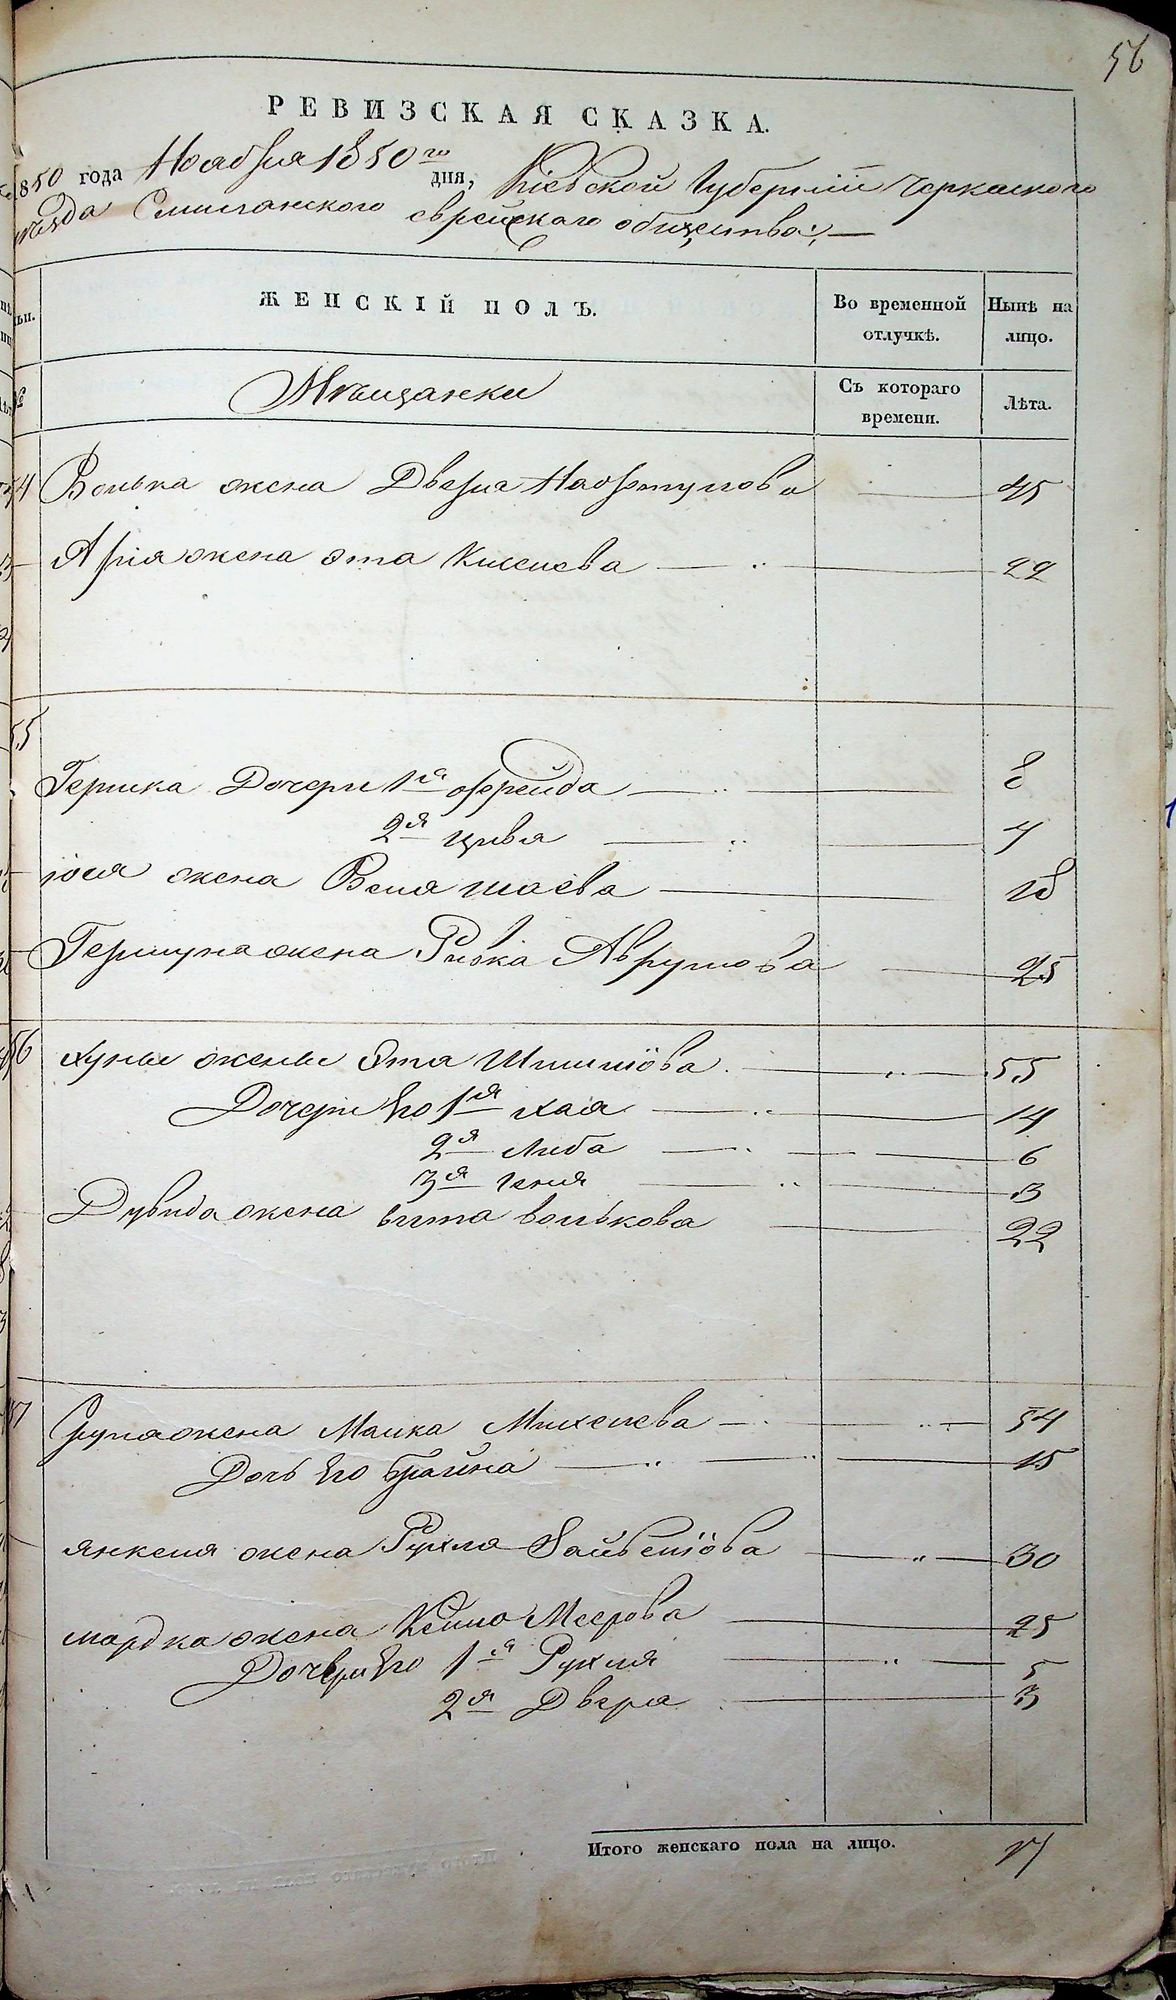 56
РЕВИЗСКАЯ СКАЗКА.
1850 года Ноября 1850го дня, Кіевской Губерніи Черкаского
уезда Смилянского еврейского общества:
ЖЕНСКІЙ ПОЛЪ.
Во временной отлучкѣ.
Нынѣ на лицо.
Мѣщанки
Съ котораго времени.
Лѣта.
54 Волька жена Двера Нафтулова 45
Арія жена Эта Кисиева 22
55
Гершка Дочери 1я Фрейда 8
2я Цивя 4
Іося жена Бейля 18
Гершуна жена Ривка Аврумова 25
56 Хуны жены Эта 55
Дочери Его 1я Хая 14
2я Либа 6
3я Геня 3
Дувида жена Бита Волькова 22
57 Сруля жена Малка Михелева 54
Дочь Его Брайна 15
Янкеля жена Рухля 30
Мордка жена Меерова 25
Дочери Его 1я Рухля 5
2я Двера 3
Итого женскаго пола на лицо. 17